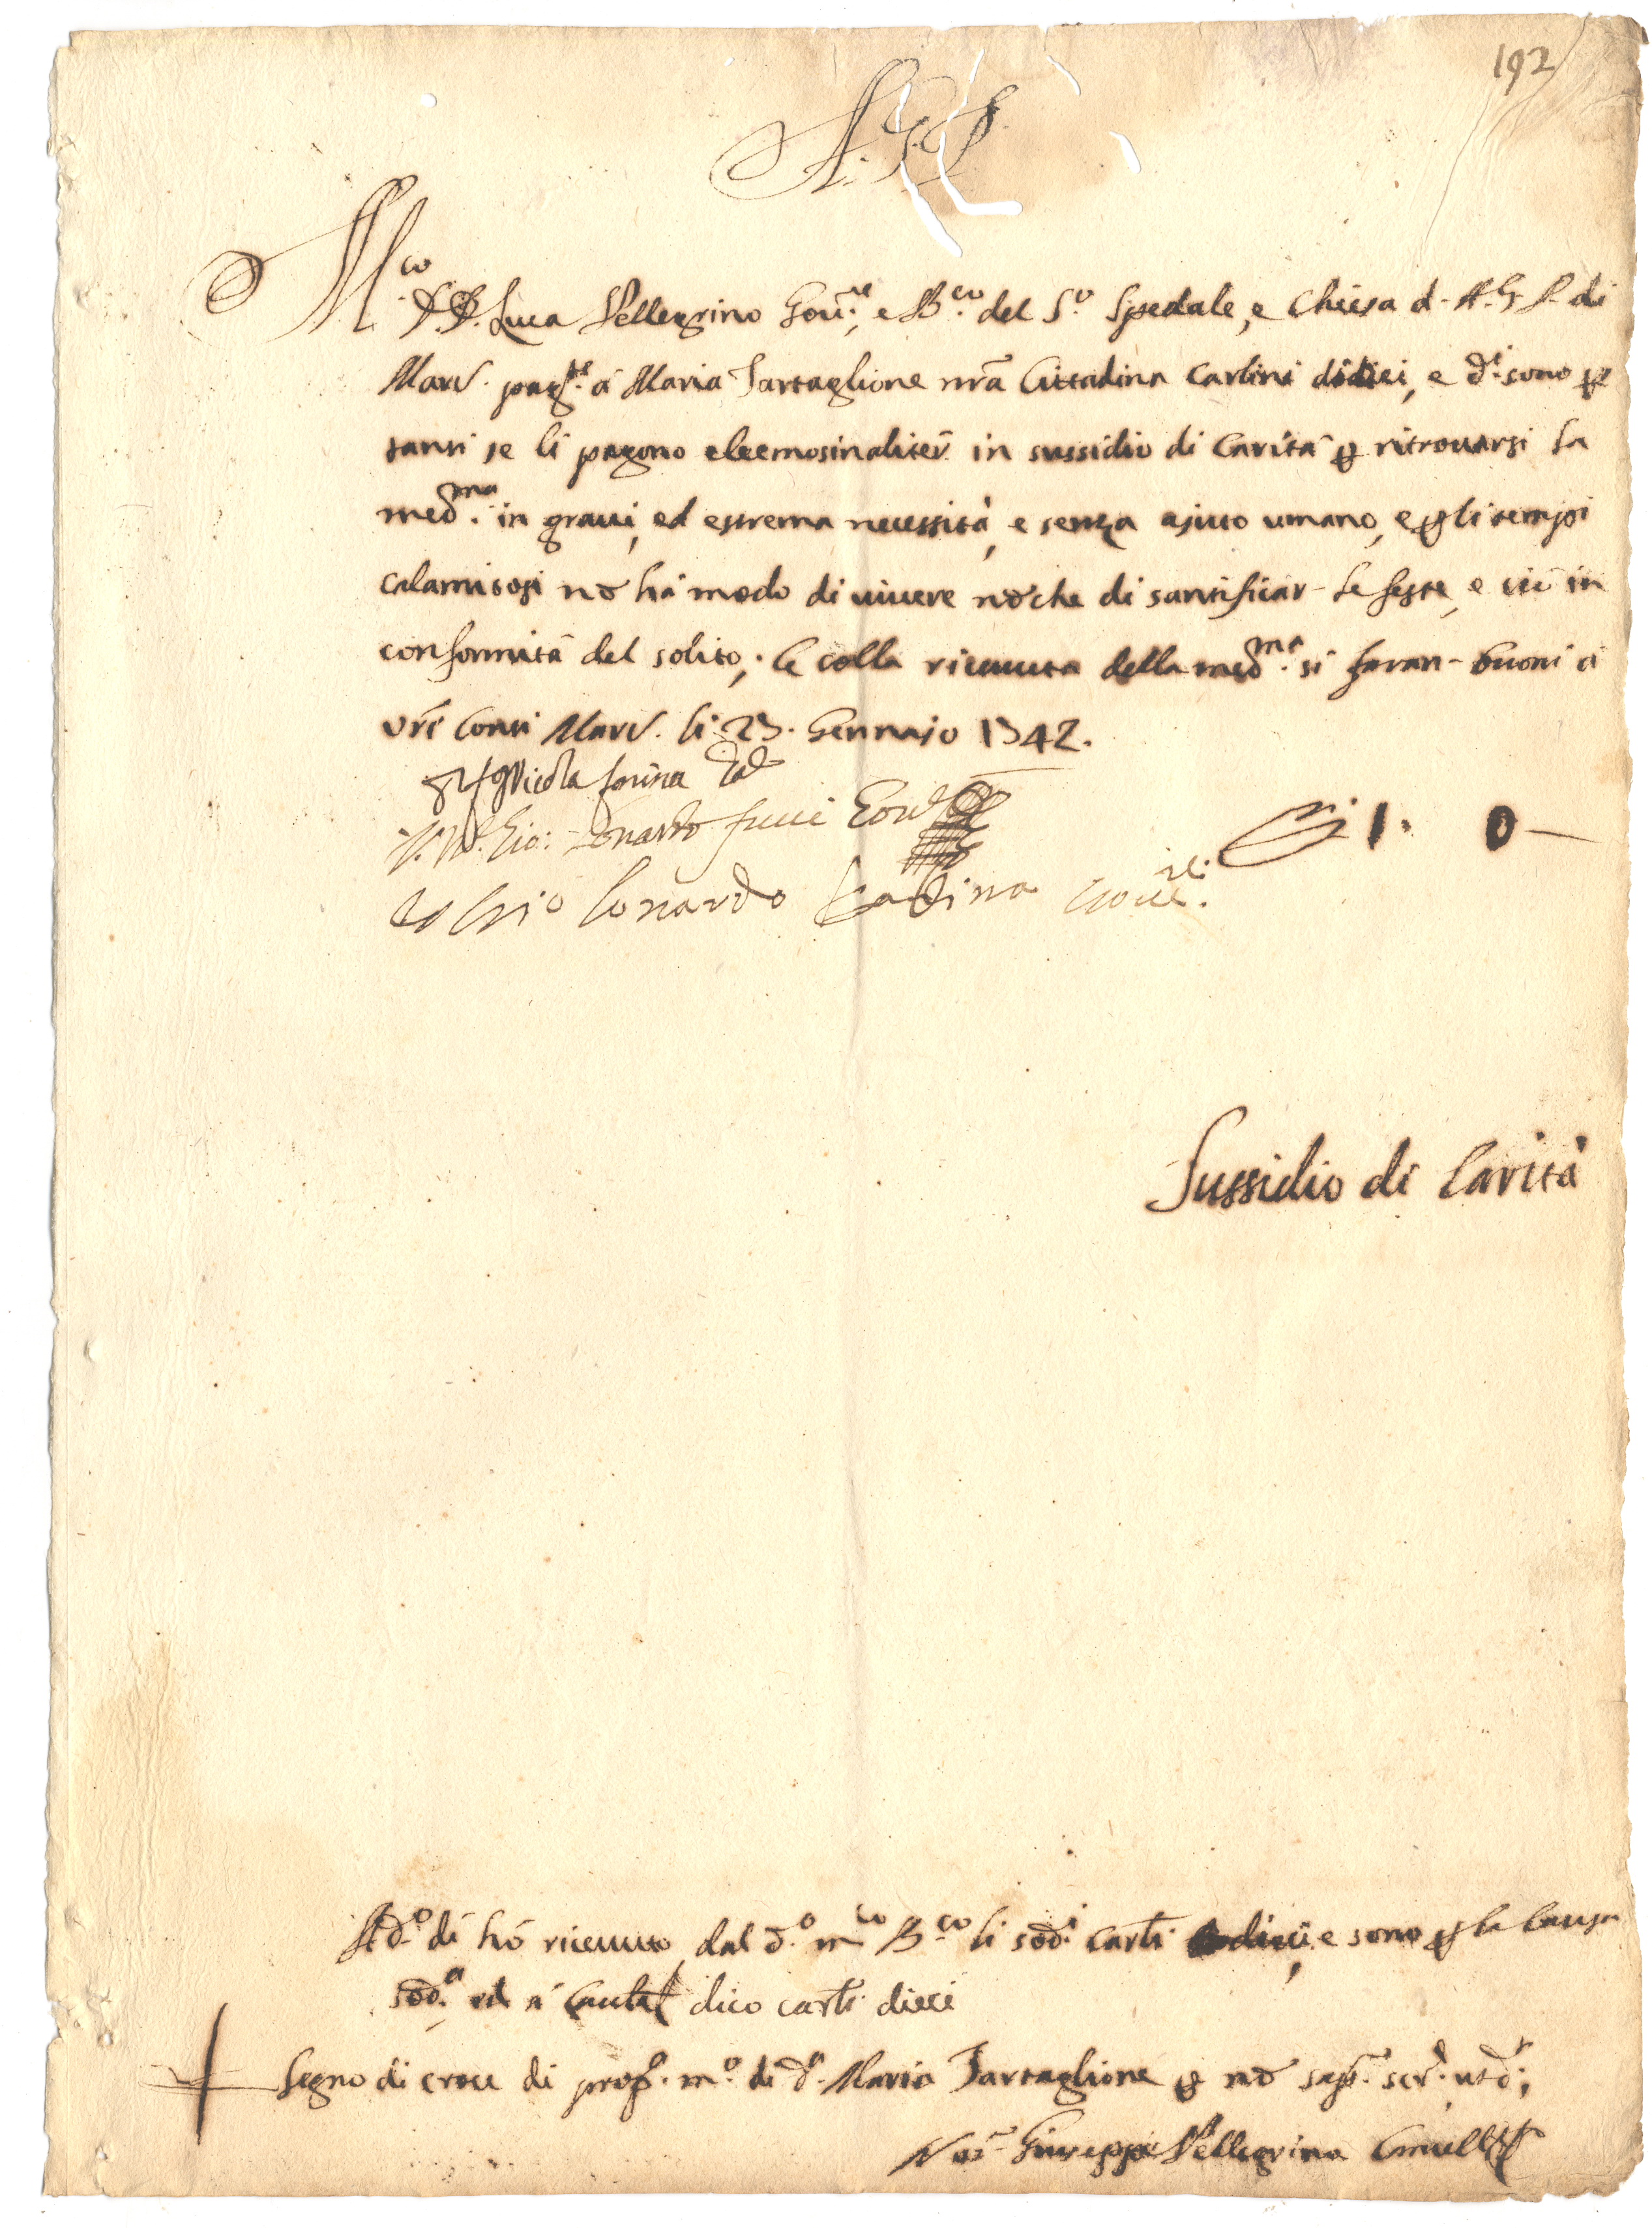 192
A. G. P.
M.co D. D. Luca Pellegrino Gou.re, e B.co del S.o Spedale, e Chiesa d- A. G. P. di
Marc. pag.te à Maria Tartaglione nrã Cittadina Carlini dieci, e d.i sono p
tanti se li pagono eleemosinaliter in sussidio di Carità p ritrouarsi la
med.ma in graui, ed estrema necessità, e senza ajuto umano, e p li tempi
calamitosi nō hà modo di uiuere nōche di santificar- le feste, e ciò in
conformità del solito; e colla riceuuta della med.ma si faran- buoni à
vr̃i Conti Marc. li 23. Gennajo 1742.
Nicola
Gio: Lonardo
Gio Lonardo Gou.re
1. 0—
Sussidio di Carità
A d.o dì hò riceuuto dal d.o m.co B.co li sod.i Carli dieci, e sono p la Causa
sod.a ed à Cautel dico carli dieci
Segno di croce di prop.a m.o di d.a Maria Tartaglione p nō sap.r scr.e ut d.r;
Not.r Giuseppe Pellegrino Cancell